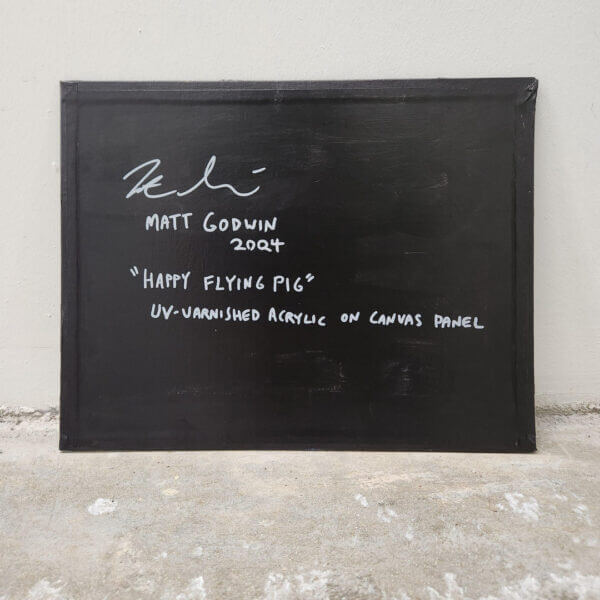 MATT GODWIN
2024
"HAPPY FLYING PIG"
UV-VARNISHED ACRYLIC ON CANVAS PANEL